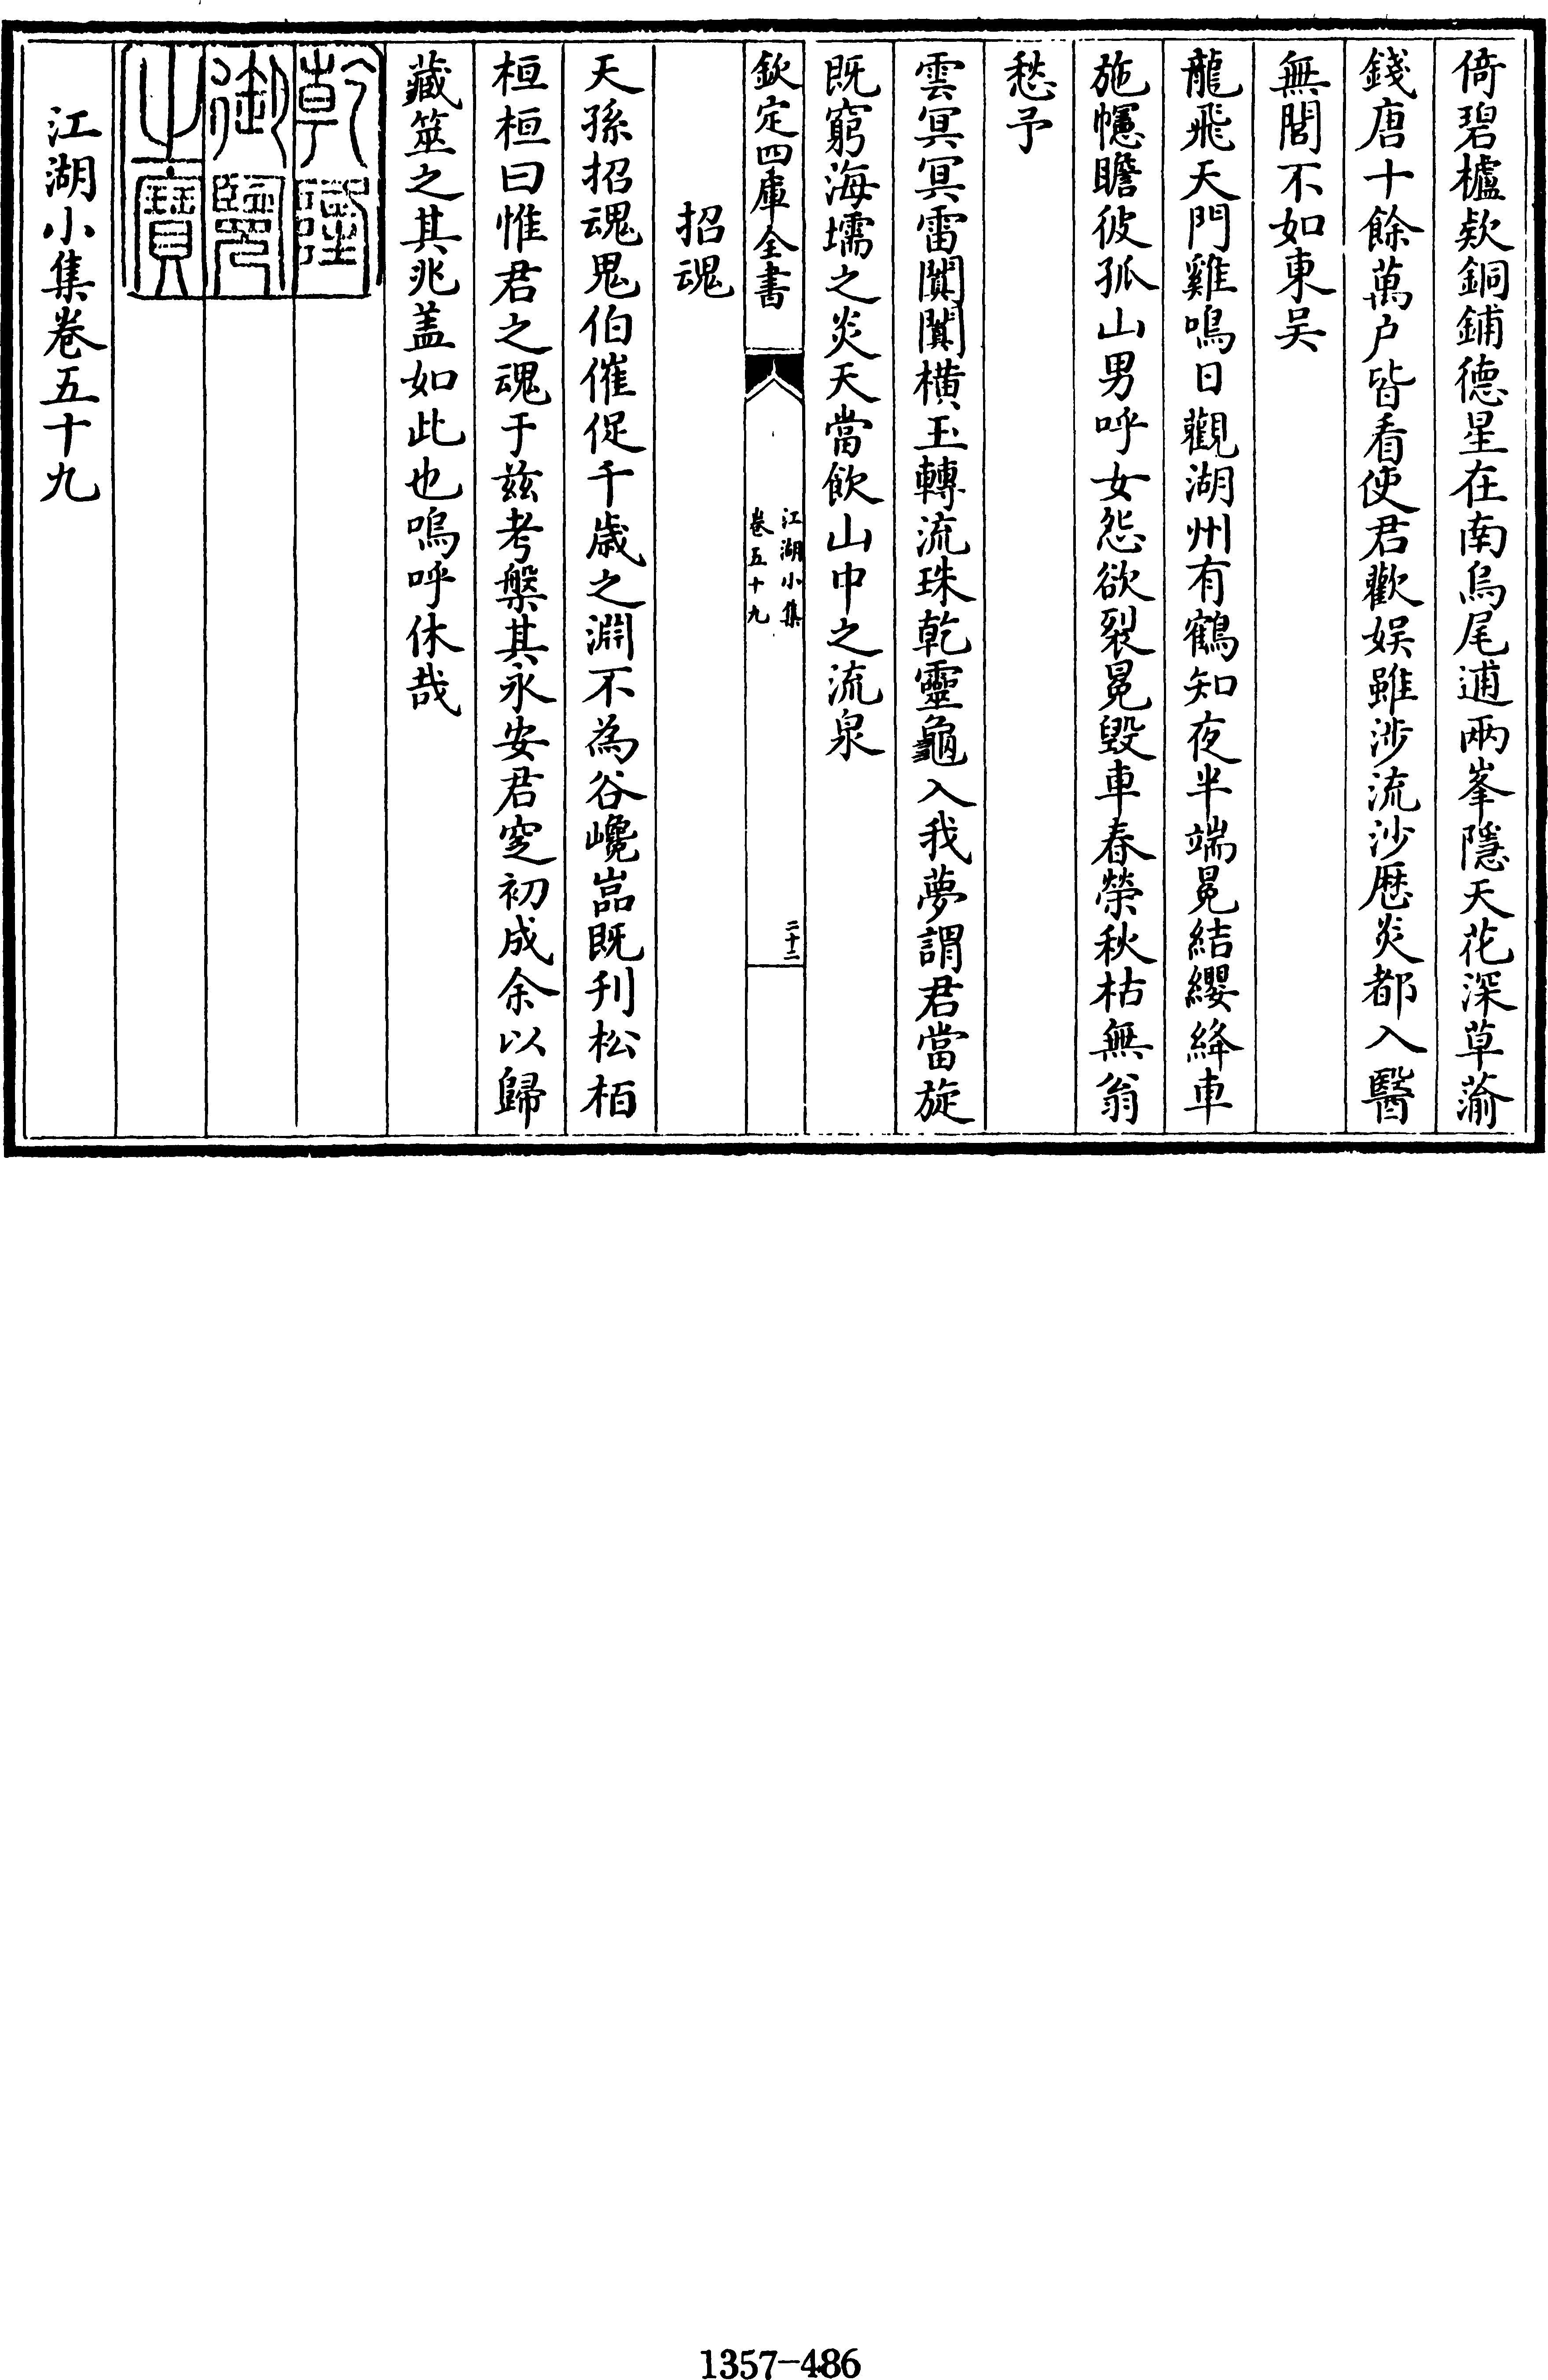 倚碧櫨欵銅鋪德星在南烏尾逋兩峯隱天花深草蕍
錢唐十餘萬户皆看使君歡娱雖涉流沙歴炎都入醫
無閭不如東吴
龍飛天門雞鳴日觀湖州有鶴知夜半端冕結纓絳車
施幰瞻彼孤山男呼女怨欲裂冕毁車春榮秋枯無翁
愁予
雲冥冥雷闐闐橫玉轉流珠乾靈龜入我夢謂君當旋
既窮海壖之炎天當飲山中之流泉
欽定四庫全書
江湖小集
卷五十九
二十二
招魂
天孫招魂鬼伯催促千歲之淵不為谷巉嵓既刋松栢
桓桓曰惟君之魂于兹考槃其永安君窆初成余以歸
藏筮之其兆盖如此也嗚呼休哉
乾隆
御覽
之寶
江湖小集卷五十九
1357-486